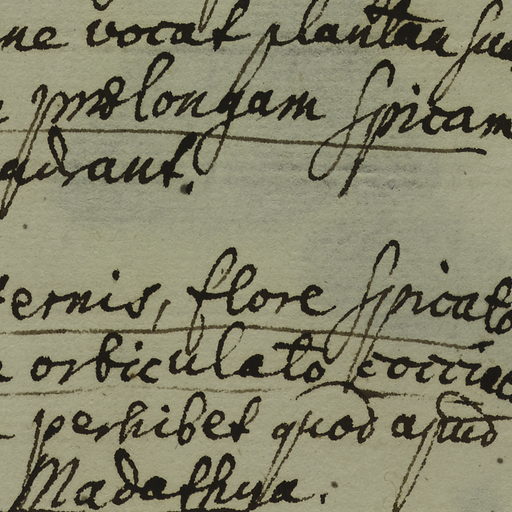 ne vocat plantam sua
prolongam spicam
quadrant.
ternis, flore spicato
orbiculato coccine
perhibet quod apud
Madathya.